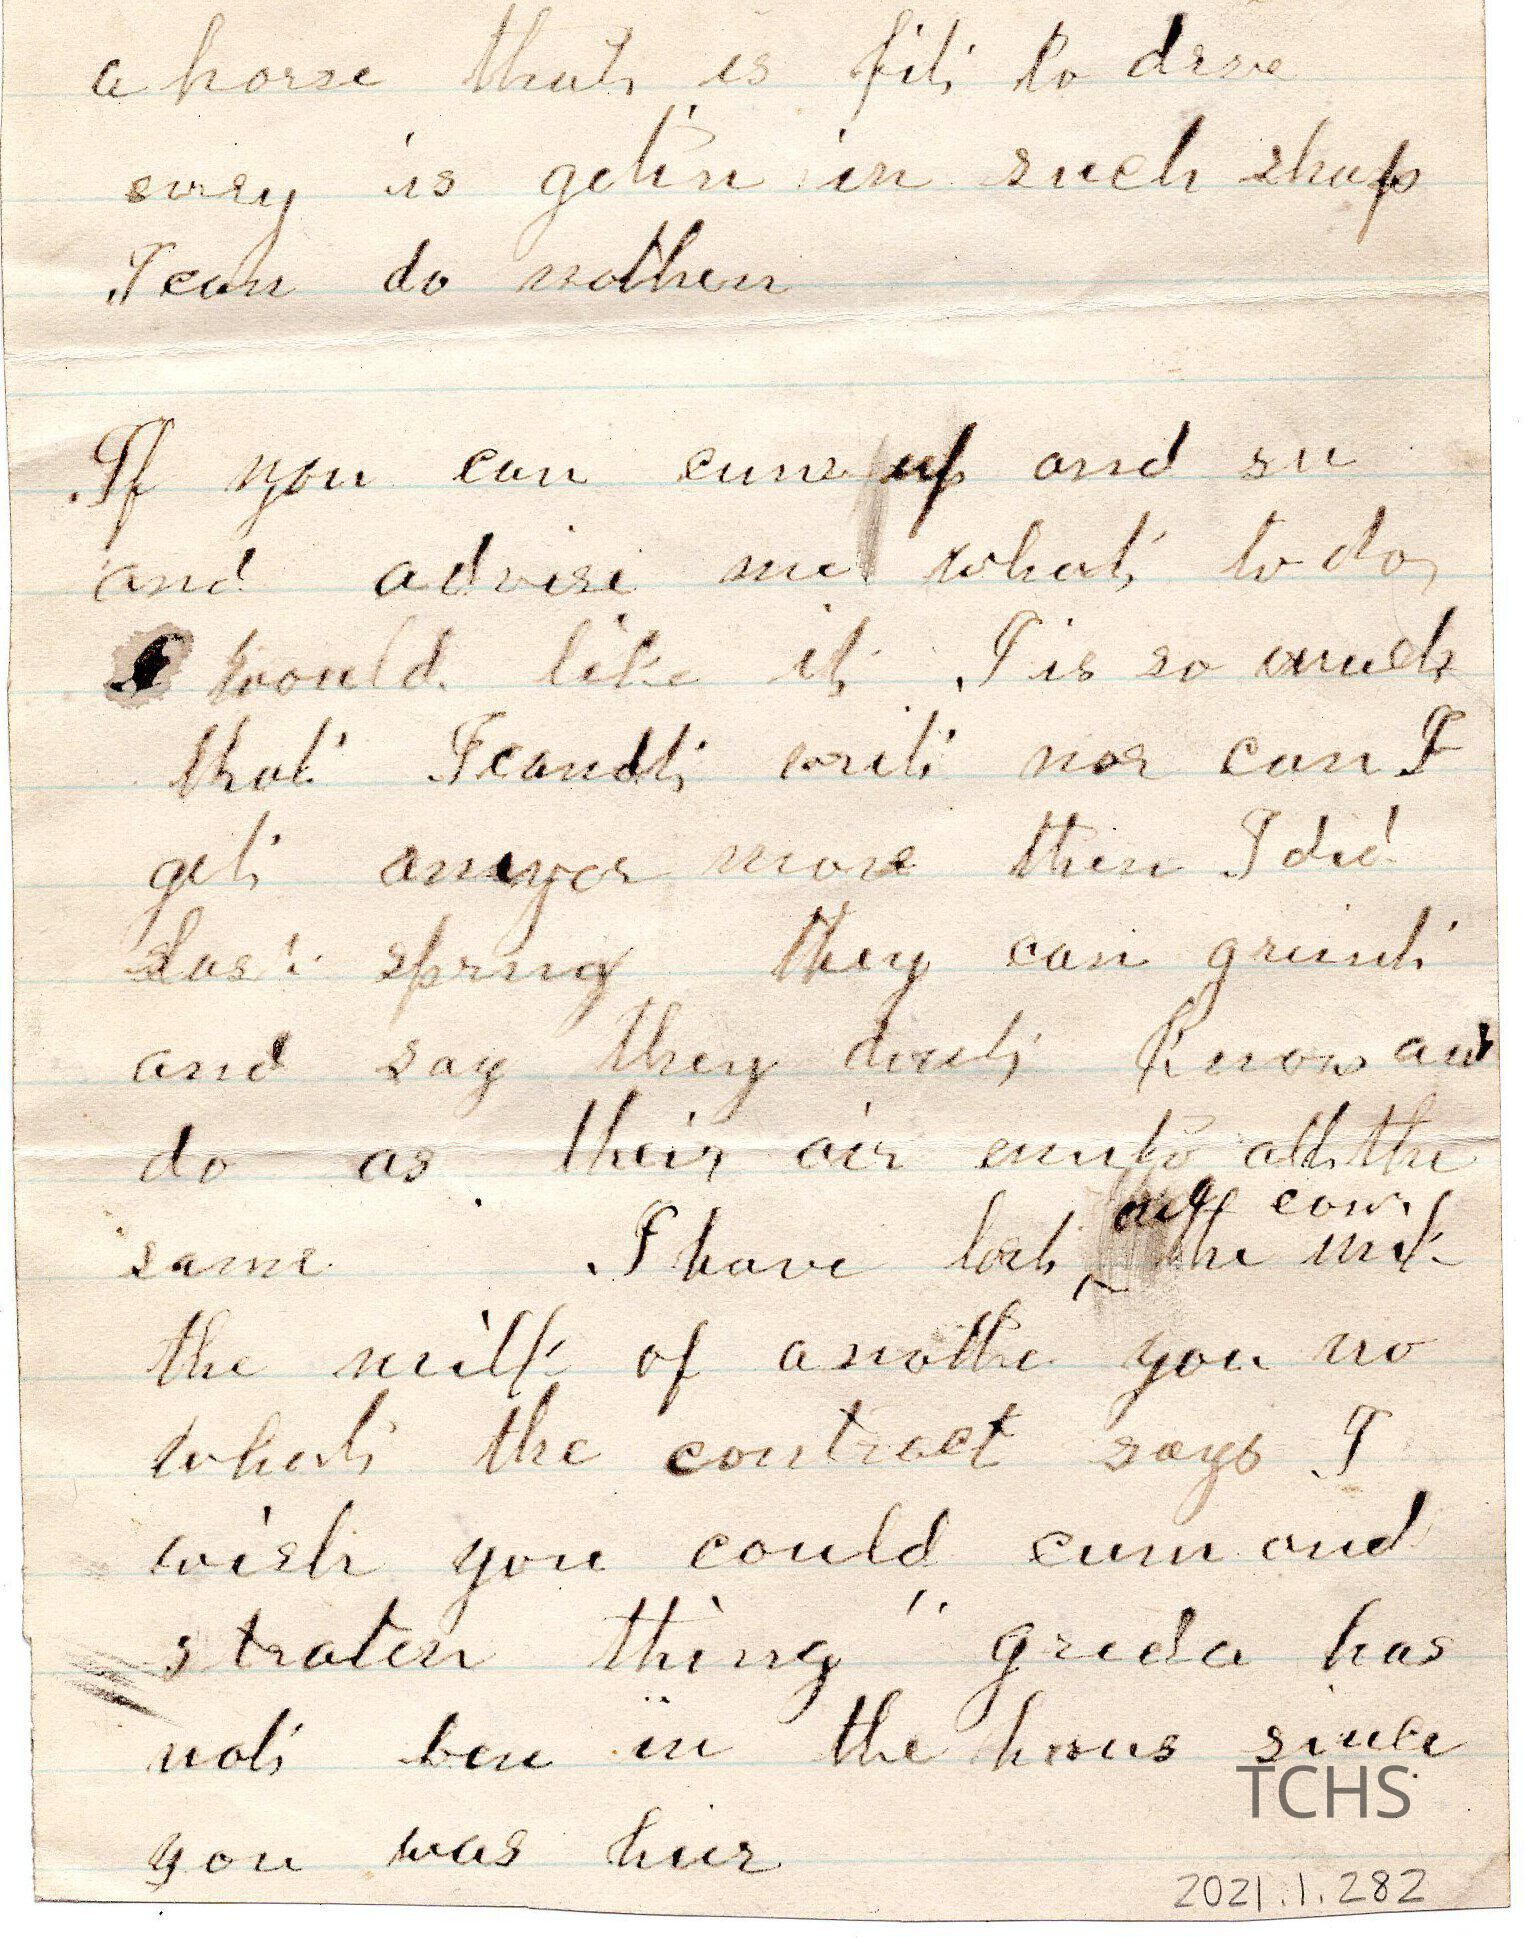 a horse that is fit to drive
evrey is getin in such shap
I can do nothen
If you can cume up and su
and advise me what to do
I would like it I is so much
that I candt writ nor can I
get anyor more then I did
last spring they can grunt
and say they dont know and
do as their air enuto all the
same I have lost one cow
the milk
the milk of anothe you no
what the contract says I
wish you could cum and
straten thing greda has
not ben in the hous since
you was hier
TCHS
2021.1.282